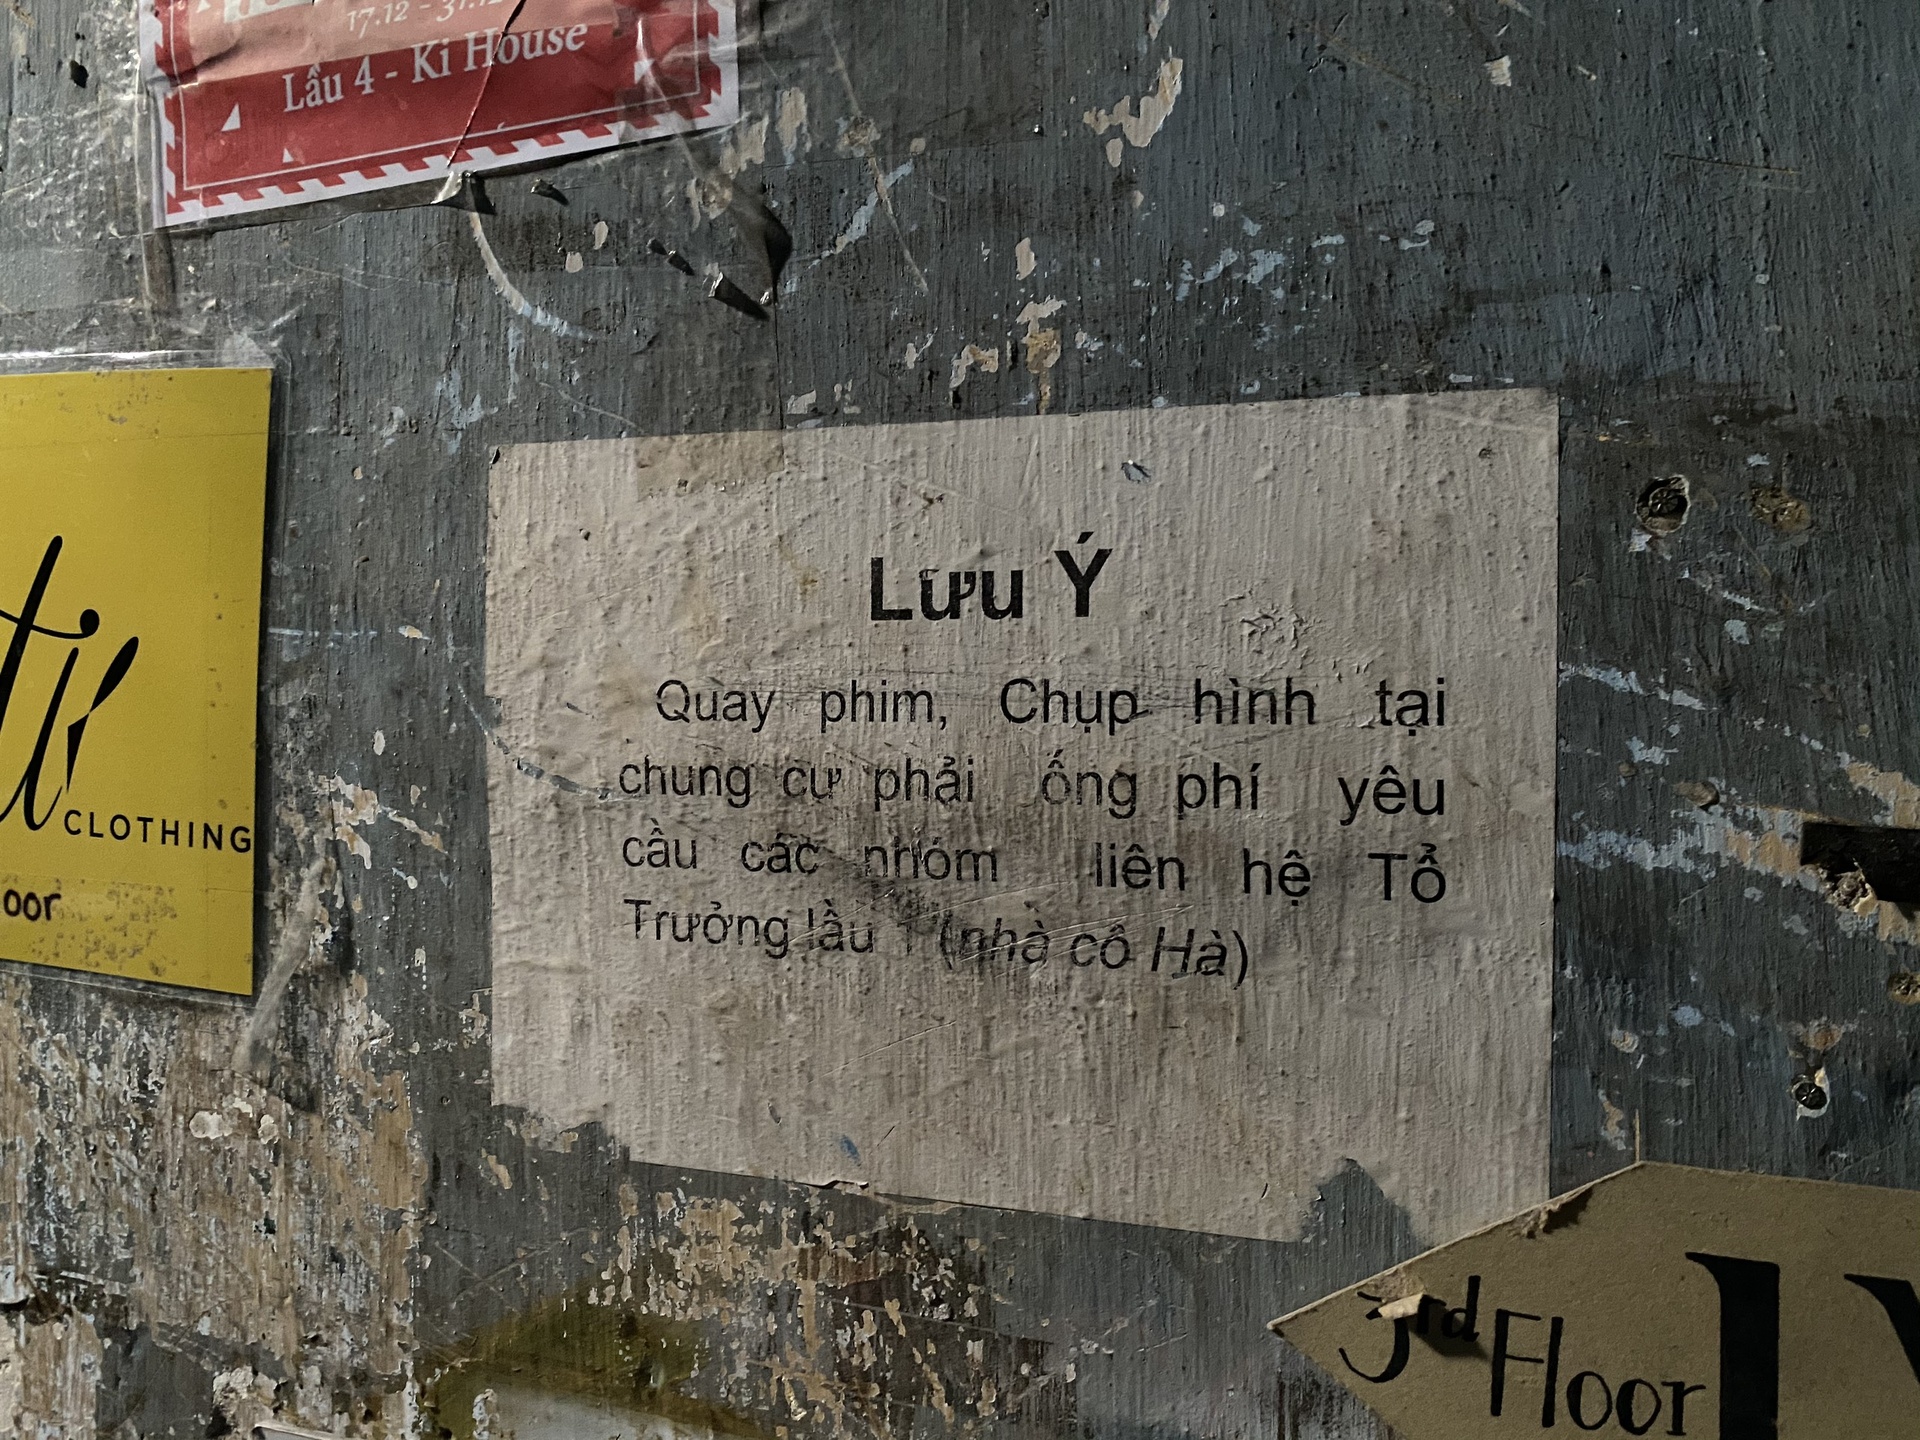 17.12 - 31.12
Lầu 4 - Ki House
CLOTHING
Lưu Ý
Quay phim, Chụp hình tại
chung cư phải ống phí yêu
cầu các nhóm liên hệ Tổ
Trưởng lầu 1 (nhà cô Hà)
3rd Floor